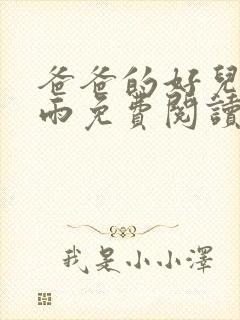 爸爸的好兒
雨免費閱讀
我是小小澤